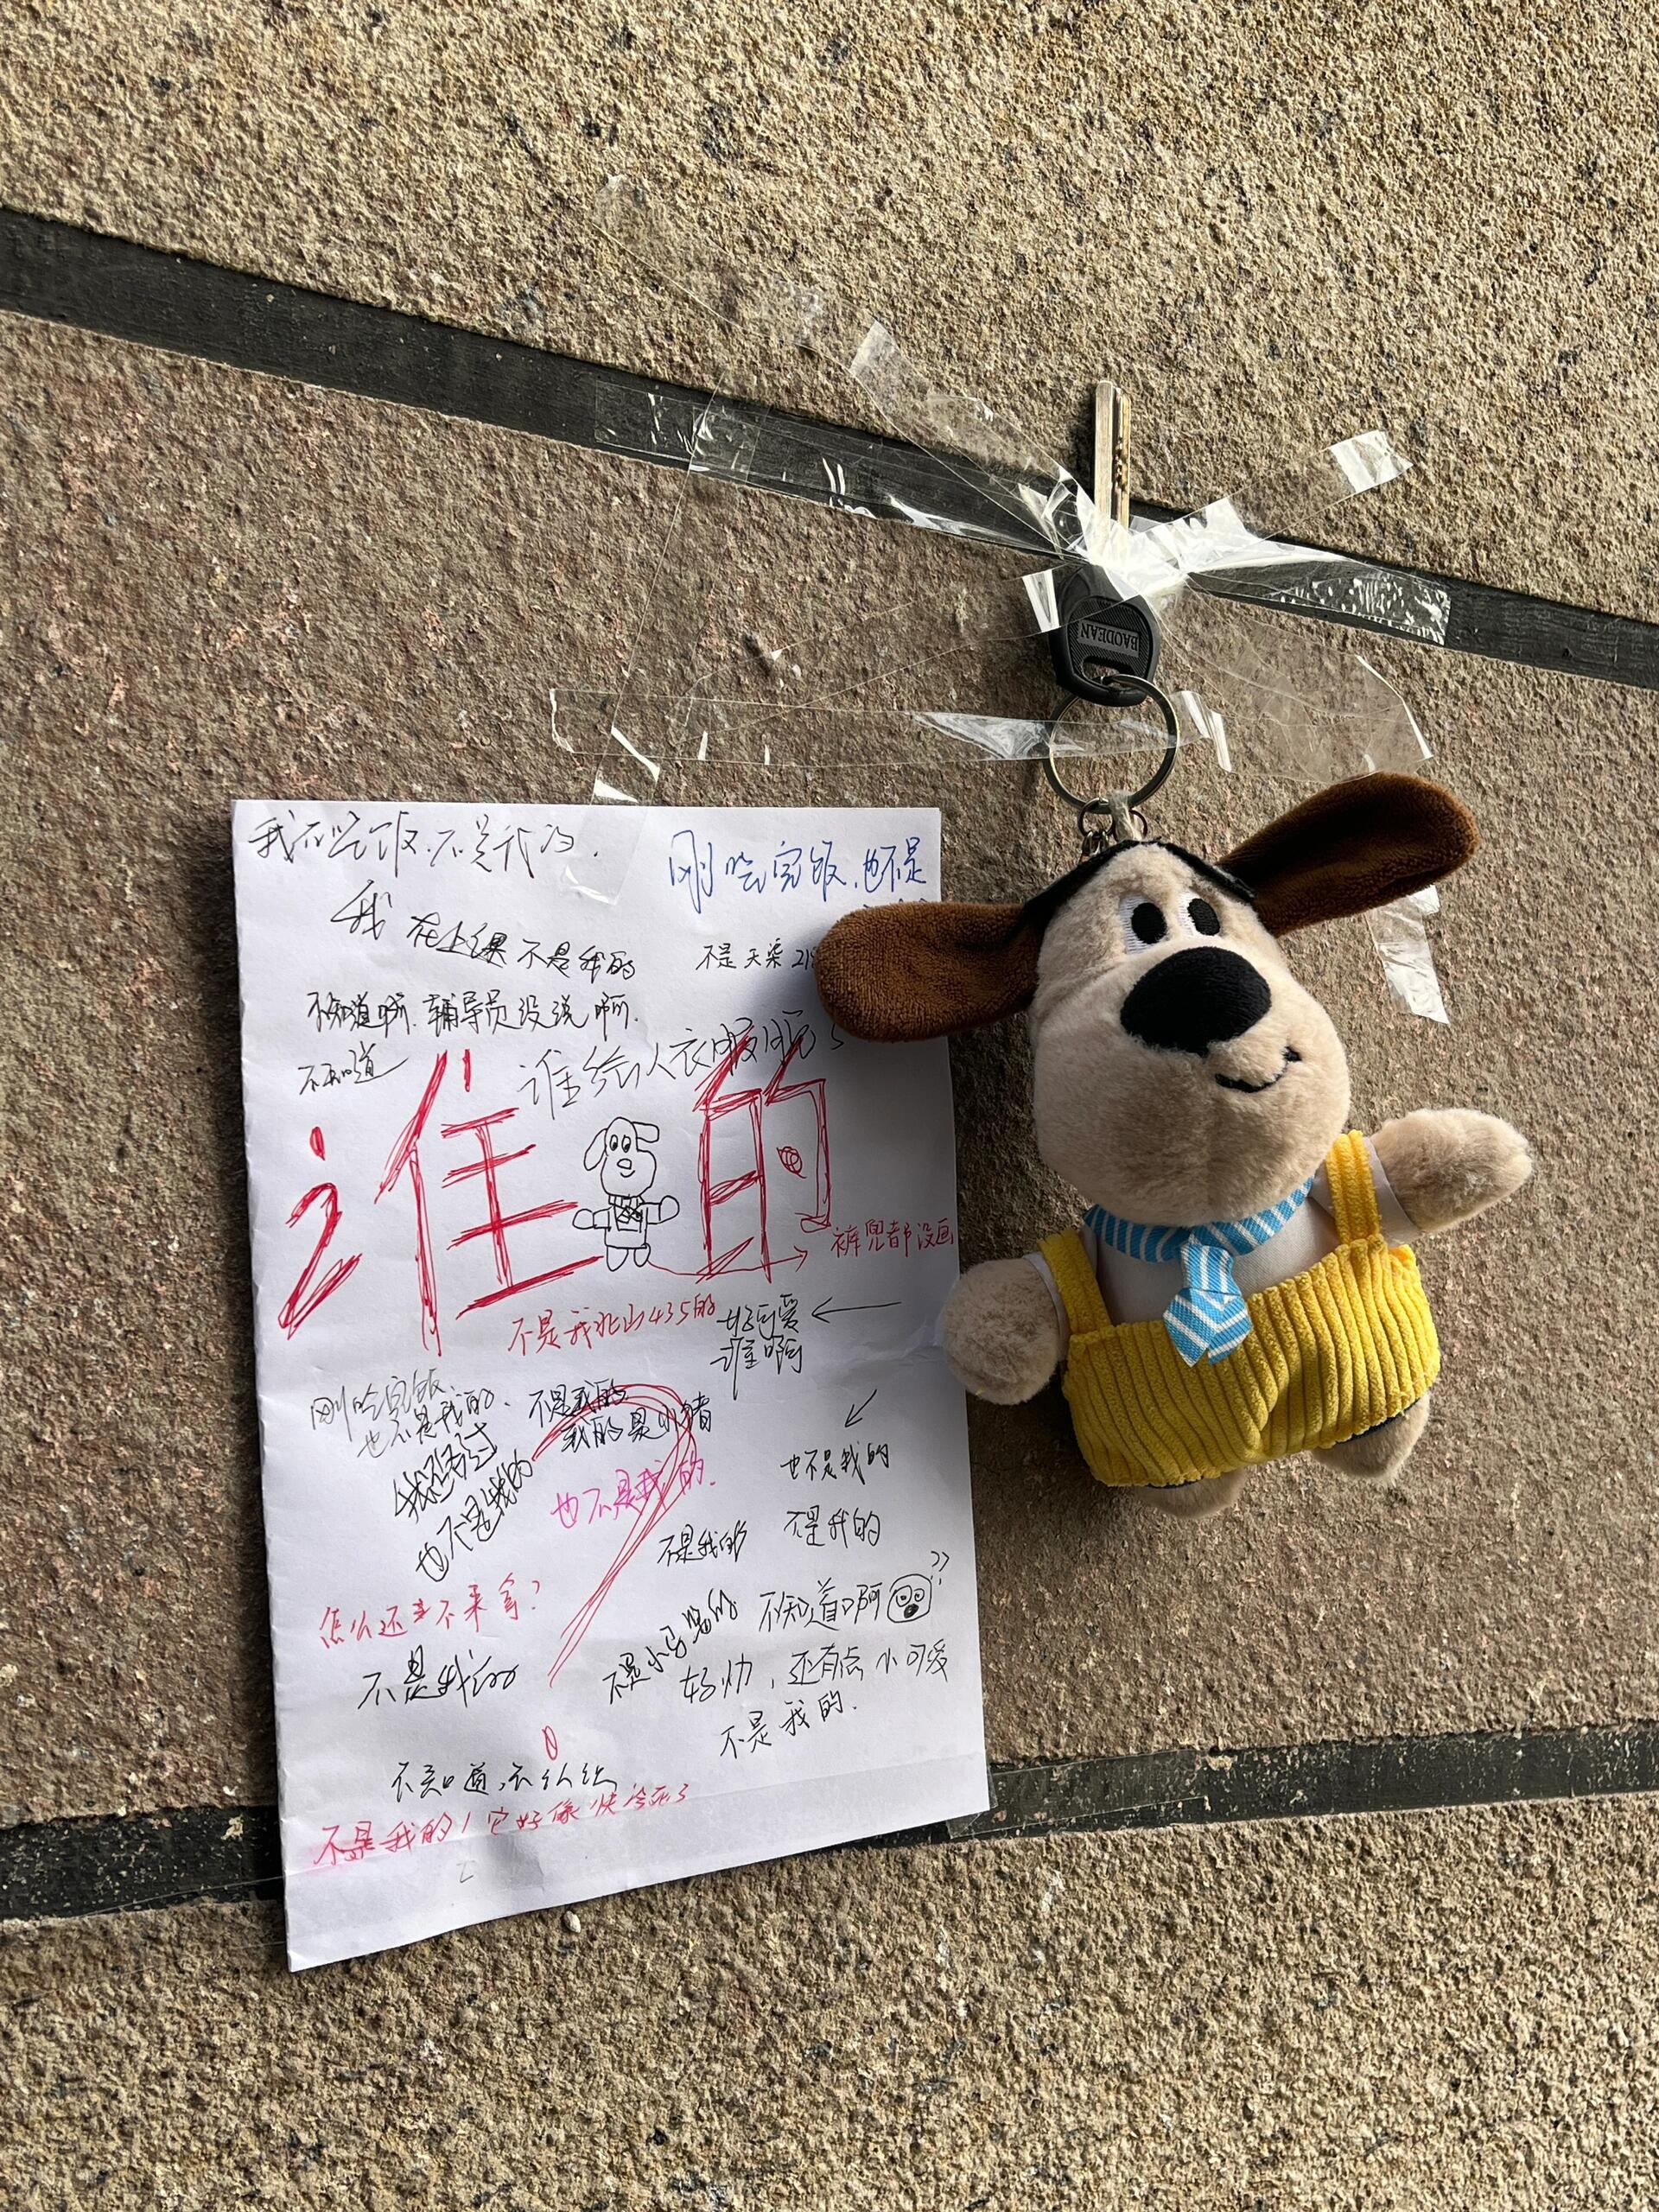 BAODEAN
我在吃饭.不是我的.
刚吃完饭.也不是
我在上课不是我的
不是天柒21
不知道啊.辅导员没说啊.
不知道
谁给人衣服
谁的
裤兜都没画
不是我北山435的
好可爱
谁啊
刚吃完饭
也不是我的.
不是我的
我的是小猪
也不是我的
也不是我的.
也不是我的
不是我的
不是我的
怎么还不来拿?
不是我的
不是 的
不知道啊??
好帅,还有点小可爱
不是我的.
不知道,不认识
不是我的!它好像快冷死了